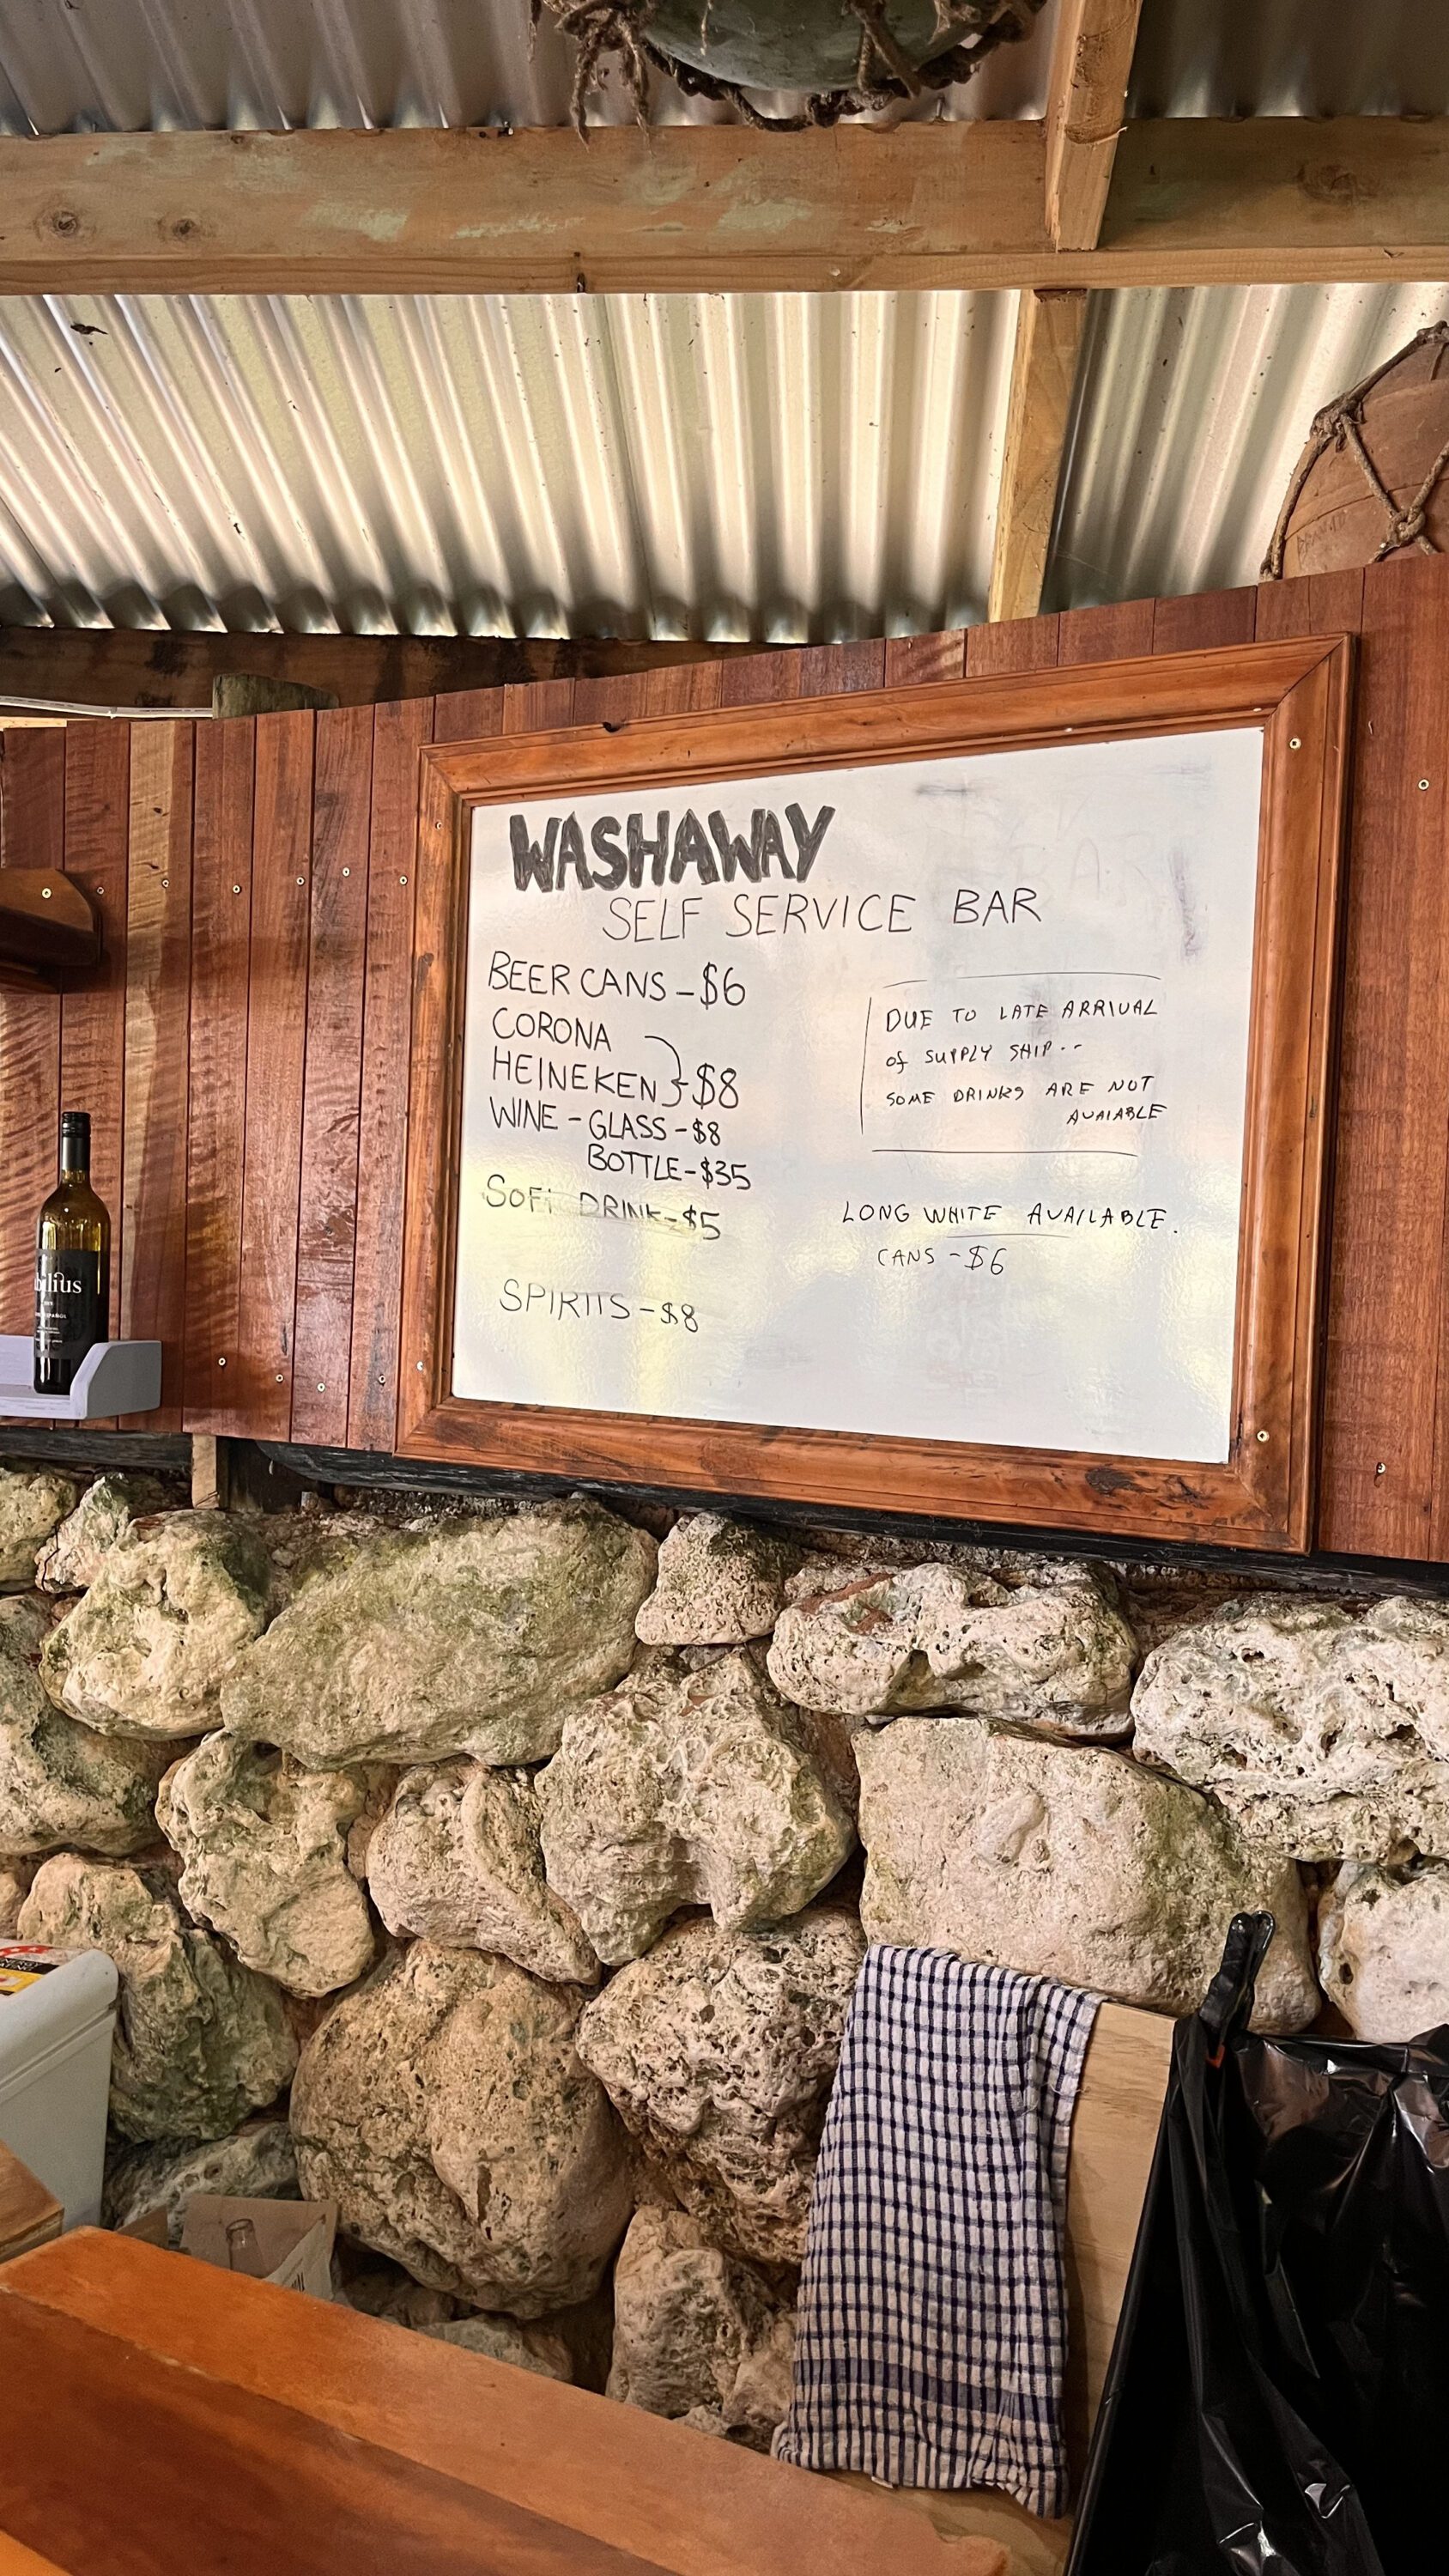 WASHAWAY
SELF SERVICE BAR
BEER CANS - $6
CORONA
HEINEKEN } $8
WINE - GLASS - $8
BOTTLE - $35
SOFT DRINK - $5
SPIRITS - $8
DUE TO LATE ARRIVAL
of SUPPLY SHIP..
SOME DRINKS ARE NOT
AVAIABLE
LONG WHITE AVAILABLE.
CANS - $6